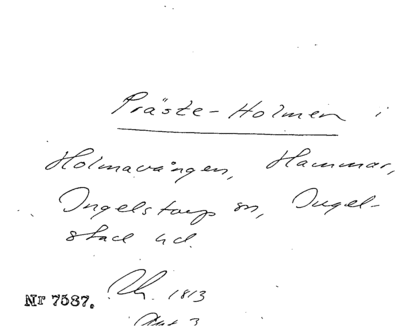 Präste-Holmen i
Holmavången, Hammar,
Ingelstorp sn, Ingel-
stad hd.
Nr 7587. 1813
Akt 3